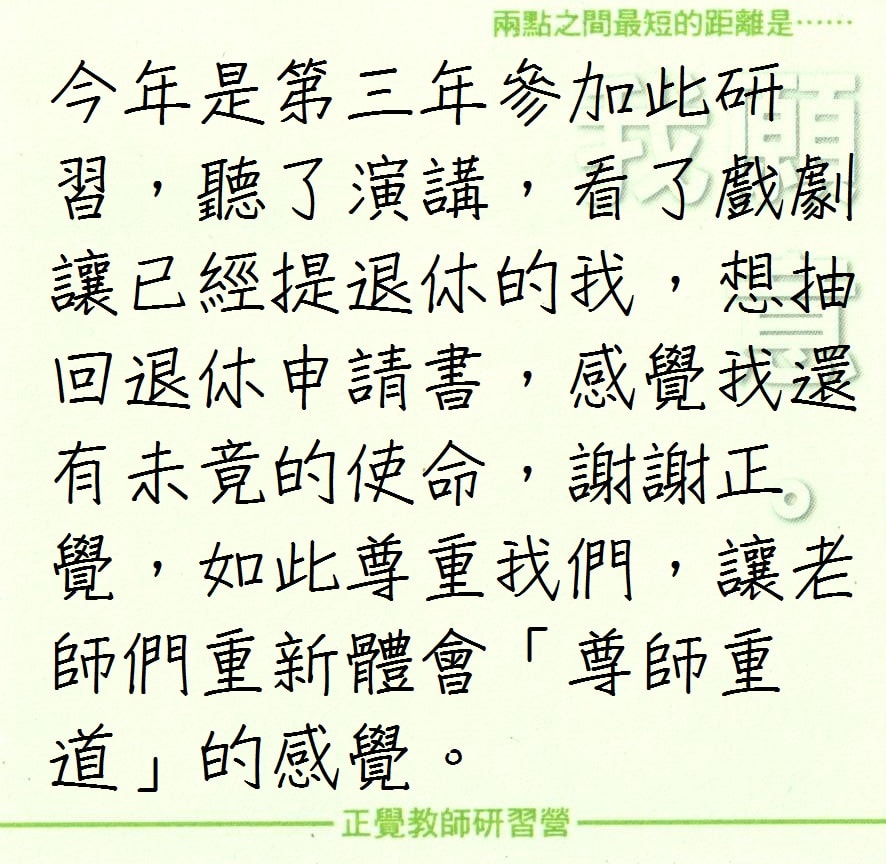 兩點之間最短的距離是……
我願意。
今年是第三年參加此研
習，聽了演講，看了戲劇
讓已經提退休的我，想抽
回退休申請書，感覺我還
有未竟的使命，謝謝正
覺，如此尊重我們，讓老
師們重新體會「尊師重
道」的感覺。
正覺教師研習營